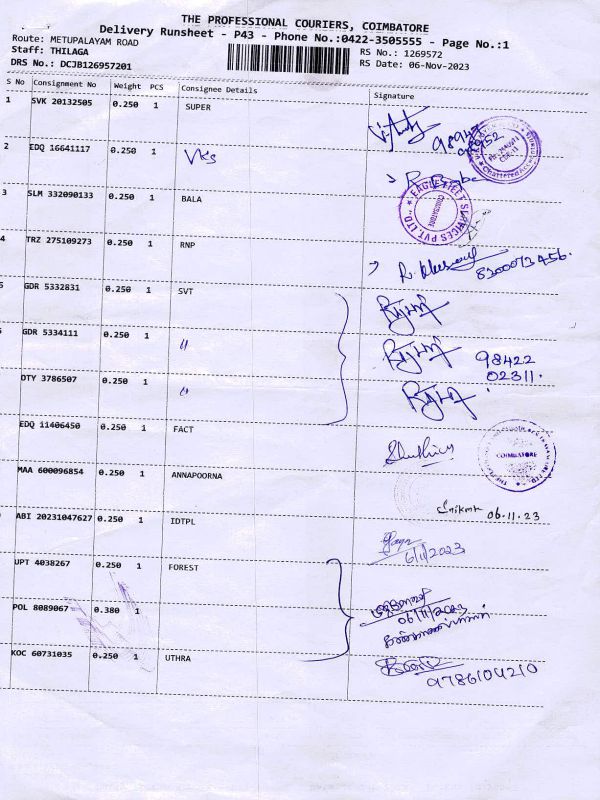 THE PROFESSIONAL COURIERS, COIMBATORE
Delivery Runsheet - P43 - Phone No.:0422-3505555 - Page No.:1
Route: METUPALAYAM ROAD
Staff: THILAGA
DRS No.: DCJB126957201
RS No.: 1269572
RS Date: 06-Nov-2023
S No Consignment No Weight PCS Consignee Details Signature
1 SVK 20132505 0.250 1 SUPER
2 EDQ 16641117 0.250 1 VKS
3 SLM 332090133 0.250 1 BALA
EAGLE FLEET SERVICES PVT. LTD.
COIMBATORE
4 TRZ 275109273 0.250 1 RNP
8300073456.
GDR 5332831 0.250 1 SVT
GDR 5334111 0.250 1 "
98422
02311.
DTY 3786507 0.250 1 "
EDQ 11406450 0.250 1 FACT
COIMBATORE
MAA 600096854 0.250 1 ANNAPOORNA
06.11.23
ABI 20231047627 0.250 1 IDTPL
6/11/2023
UPT 4038267 0.250 1 FOREST
POL 8089067 0.380 1
06/11/2023
KOC 60731035 0.250 1 UTHRA
9786104210